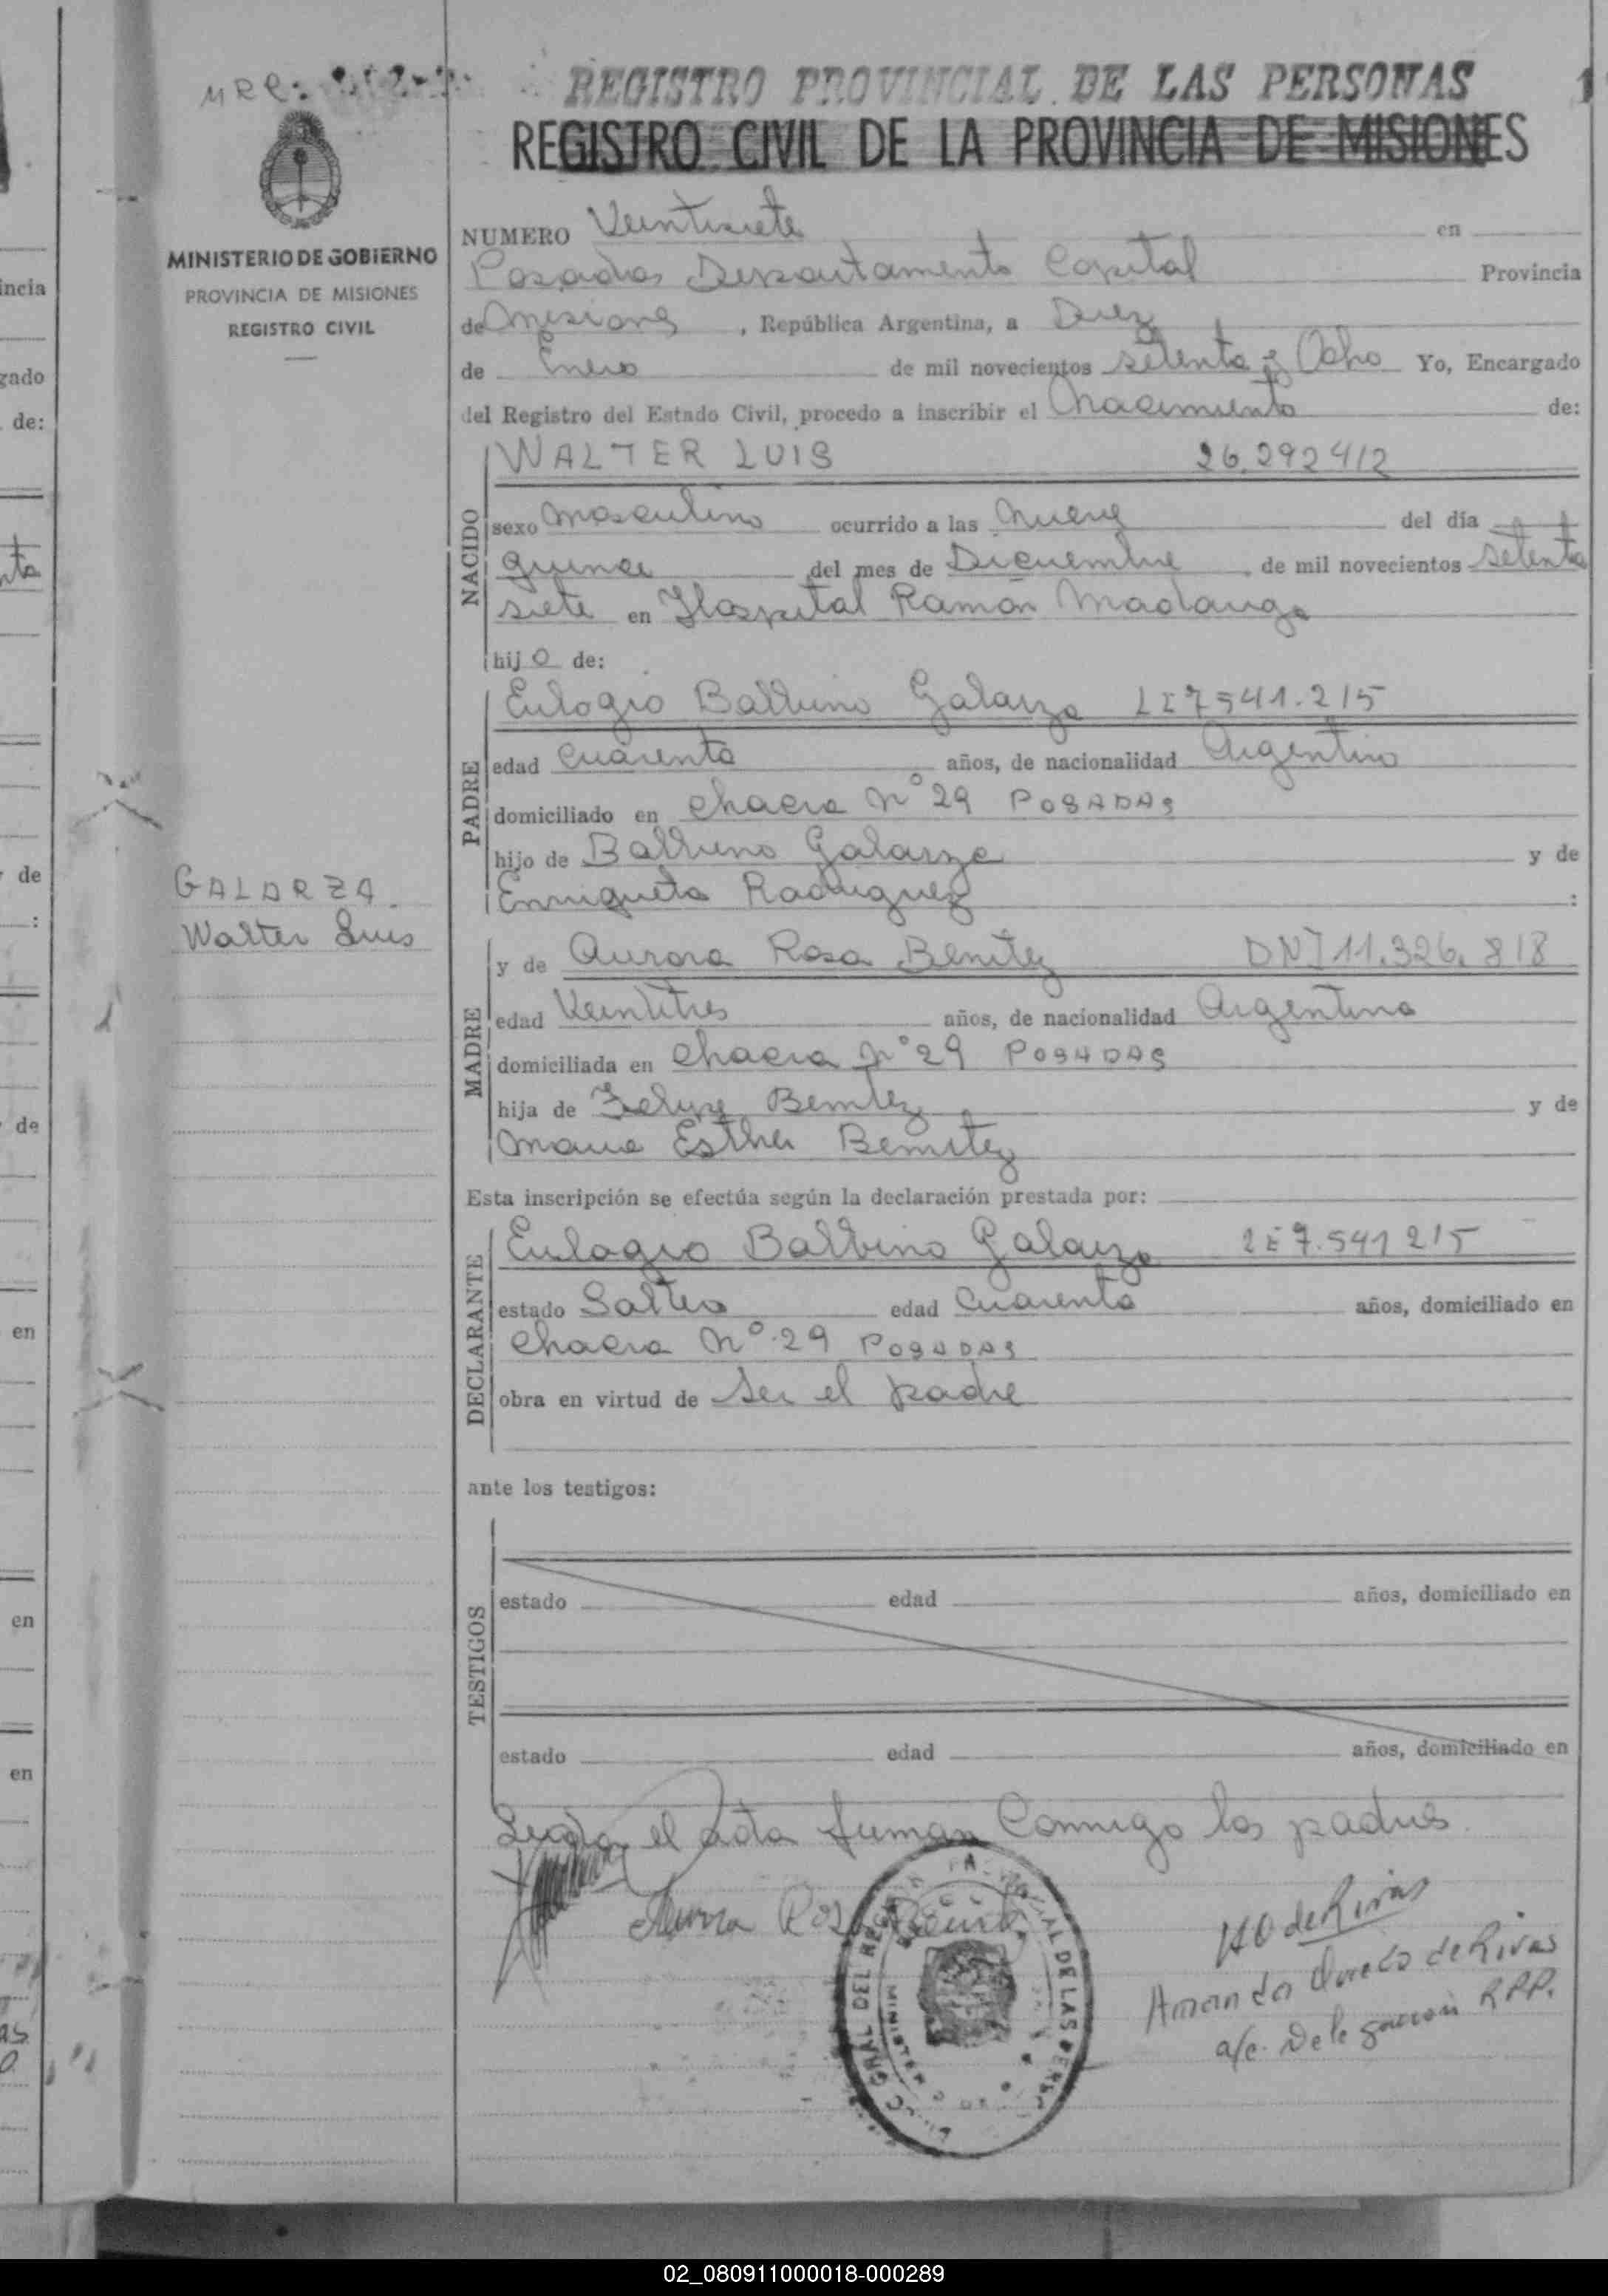 MRC:
REGISTRO PROVINCIAL DE LAS PERSONAS
REGISTRO CIVIL DE LA PROVINCIA DE MISIONES
MINISTERIO DE GOBIERNO
PROVINCIA DE MISIONES
REGISTRO CIVIL
NUMERO Veintisiete en
Posadas Departamento Capital Provincia
de Misiones, República Argentina, a Diez
de Enero de mil novecientos setenta y Ocho Yo, Encargado
del Registro del Estado Civil, procedo a inscribir el Nacimiento de:
NACIDO
WALTER LUIS 26.292412
sexo Masculino ocurrido a las Nueve del día
quince del mes de Diciembre de mil novecientos setenta
siete en Hospital Ramón Madariaga
hijo de:
PADRE
Eulogio Balbino Galarza LE 7541.215
edad Cuarenta años, de nacionalidad Argentino
domiciliado en Chacra Nº 29 POSADAS
hijo de Balbino Galarza y de
Enriqueta Rodriguez :
GALARZA
Walter Luis
MADRE
y de Aurora Rosa Benitez DNI 11.326.818
edad Veintitres años, de nacionalidad Argentina
domiciliada en Chacra Nº 29 POSADAS
hija de Felipe Benitez y de
Maria Esther Benitez
Esta inscripción se efectúa según la declaración prestada por:
DECLARANTE
Eulogio Balbino Galarza LE 7.541 215
estado Soltero edad Cuarenta años, domiciliado en
Chacra Nº 29 POSADAS
obra en virtud de Ser el padre
ante los testigos:
TESTIGOS
estado edad años, domiciliado en
estado edad años, domiciliado en
Leida el acta firman Conmigo los padres.
Aurora Rosa Benitez
GRAL DEL REG DE LAS PERS
HO de Rivas
Amanda de Rivas
a/c. Delegación RPP.
02_080911000018-000289